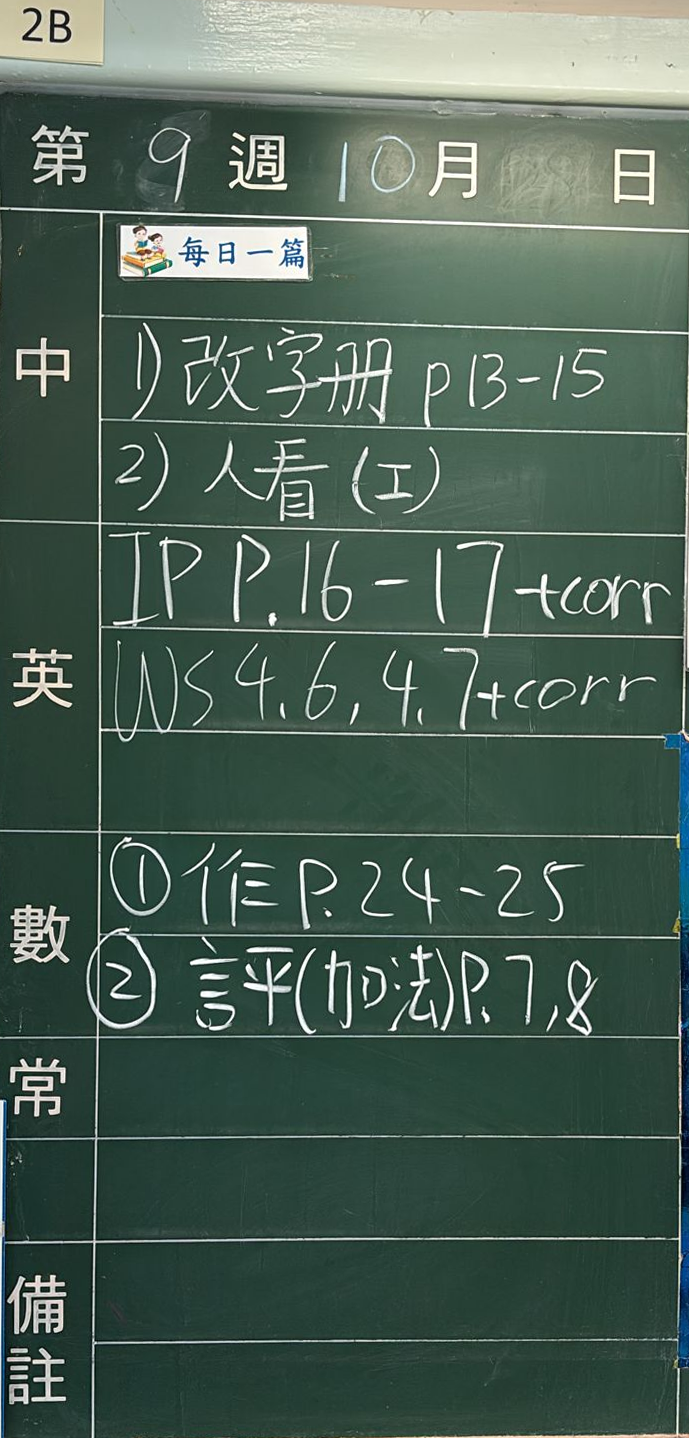 2B
第 9 週 10 月 日
每日一篇
中
1) 改字册 p13-15
2) 人看 (工)
英
IP P.16-17+corr
WS 4.6, 4.7+corr
數
① 作 P.24-25
② 評(加法)P.7,8
常
備註